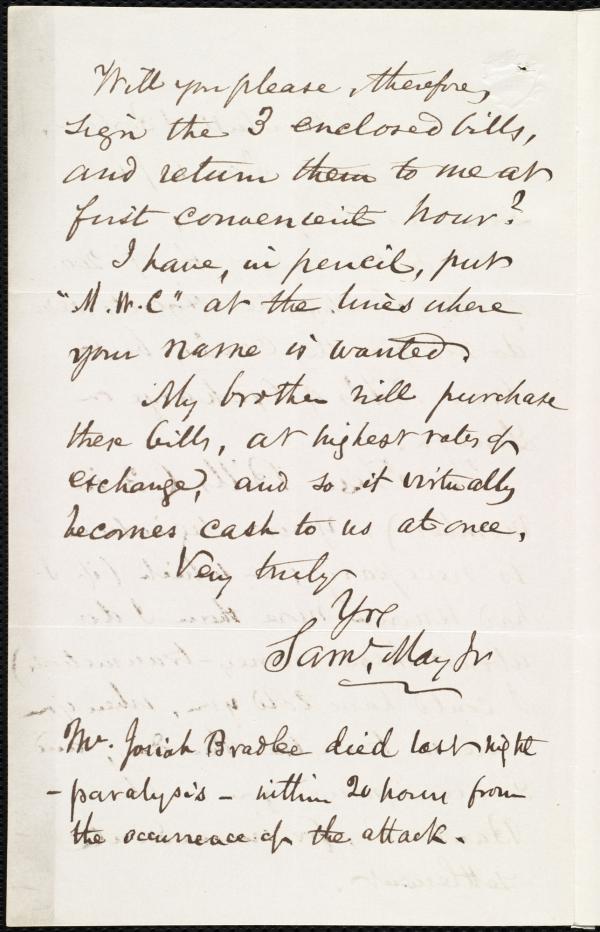 Will you please, therefore,
sign the 3 enclosed bills,
and return them to me at
first convenient hour?
I have, in pencil, put
"M.W.C" at the lines where
your name is wanted.
My brother will purchase
these bills, at highest rates of
exchange, and so it virtually
becomes cash to us at once.
Very truly
Yrs
Saml. May Jr
Mr. Josiah Bradlee died last night
- paralysis - within 20 hours from
the occurrence of the attack.